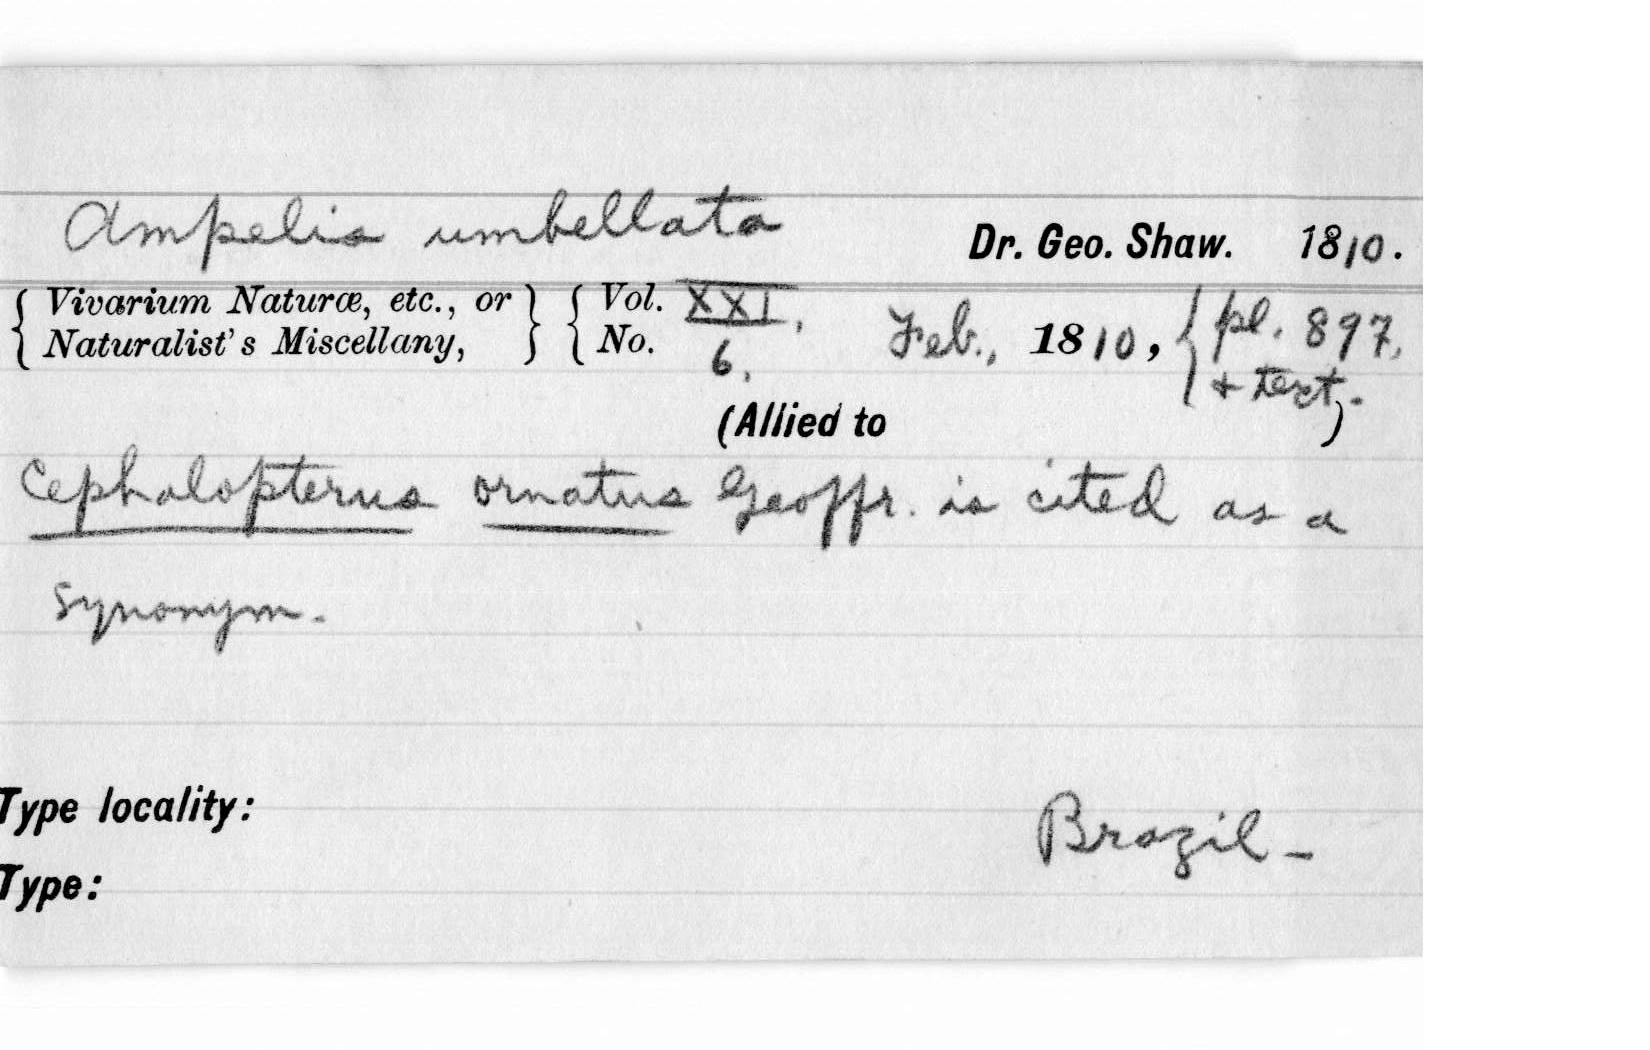 Ampelis umbellata
Dr. Geo. Shaw. 1810.
Vivarium Naturæ, etc., or Vol. XXI,
Naturalist's Miscellany, No. 6. Feb., 1810, pl. 897,
+ text.
(Allied to )
Cephalopterus ornatus Geoffr. is cited as a
synonym.
Type locality: Brazil-
Type: